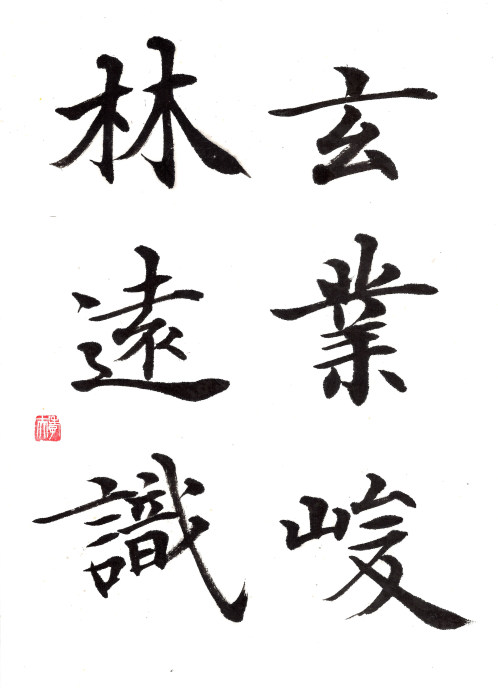 玄業峻
林遠識